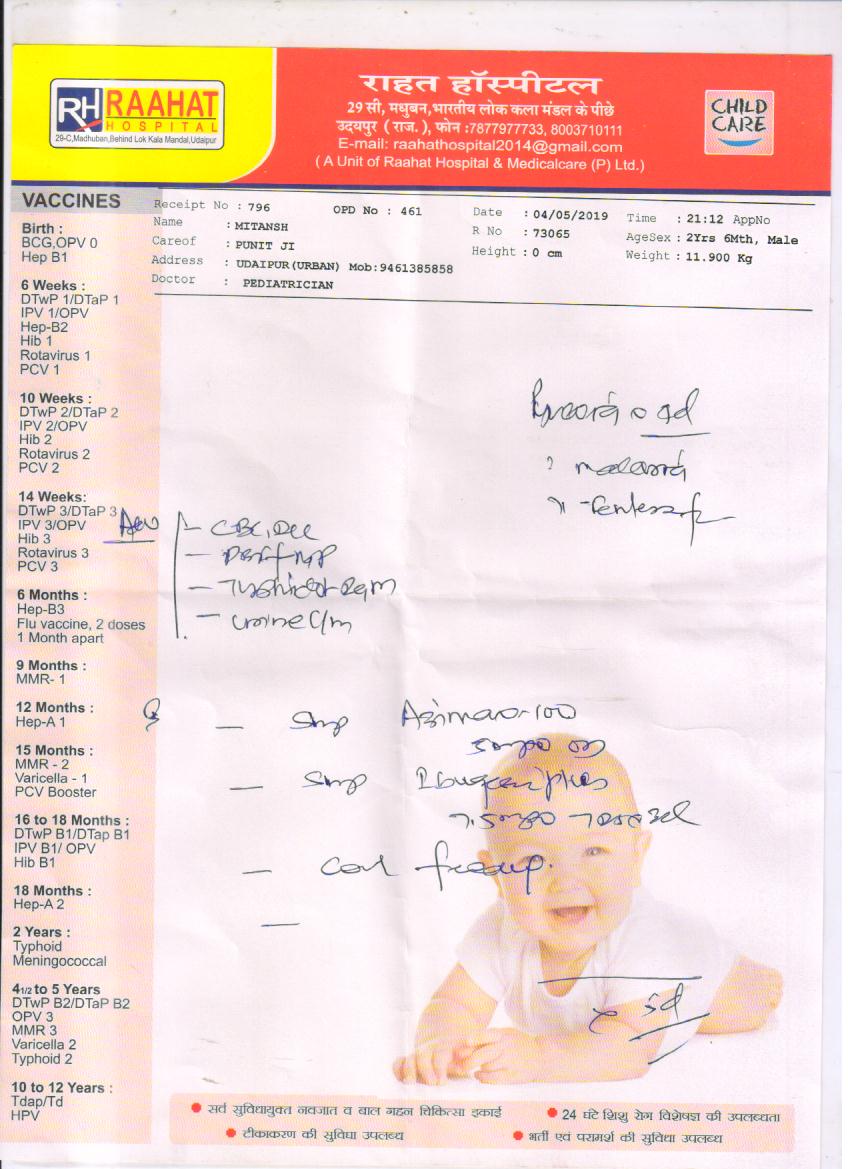 RH RAAHAT
HOSPITAL
29-C,Madhuban,Behind Lok Kala Mandal,Udaipur
राहत हॉस्पीटल
29 सी, मधुबन,भारतीय लोक कला मंडल के पीछे
उदयपुर ( राज.), फोन :7877977733, 8003710111
E-mail: raahathospital2014@gmail.com
( A Unit of Raahat Hospital & Medicalcare (P) Ltd.)
CHILD
CARE
VACCINES
Birth :
BCG,OPV 0
Hep B1
6 Weeks :
DTwP 1/DTaP 1
IPV 1/OPV
Hep-B2
Hib 1
Rotavirus 1
PCV 1
10 Weeks :
DTwP 2/DTaP 2
IPV 2/OPV
Hib 2
Rotavirus 2
PCV 2
14 Weeks:
DTwP 3/DTaP 3
IPV 3/OPV
Hib 3
Rotavirus 3
PCV 3
6 Months :
Hep-B3
Flu vaccine, 2 doses
1 Month apart
9 Months :
MMR- 1
12 Months :
Hep-A 1
15 Months :
MMR - 2
Varicella - 1
PCV Booster
16 to 18 Months :
DTwP B1/DTap B1
IPV B1/ OPV
Hib B1
18 Months :
Hep-A 2
2 Years :
Typhoid
Meningococcal
41/2 to 5 Years
DTwP B2/DTaP B2
OPV 3
MMR 3
Varicella 2
Typhoid 2
10 to 12 Years :
Tdap/Td
HPV
Receipt No : 796 OPD No : 461 Date : 04/05/2019 Time : 21:12 AppNo
Name : MITANSH R No : 73065 AgeSex : 2Yrs 6Mth, Male
Careof : PUNIT JI Height : 0 cm Weight : 11.900 Kg
Address : UDAIPUR(URBAN) Mob:9461385858
Doctor : PEDIATRICIAN
? malaria
Adv
- CBC, DLC
- Urine C/m
- Syp
- Syp
सर्व सुविधायुक्त नवजात व बाल गहन चिकित्सा इकाई
24 घंटे शिशु रोग विशेषज्ञ की उपलब्धता
टीकाकरण की सुविधा उपलब्ध
भर्ती एवं परामर्श की सुविधा उपलब्ध